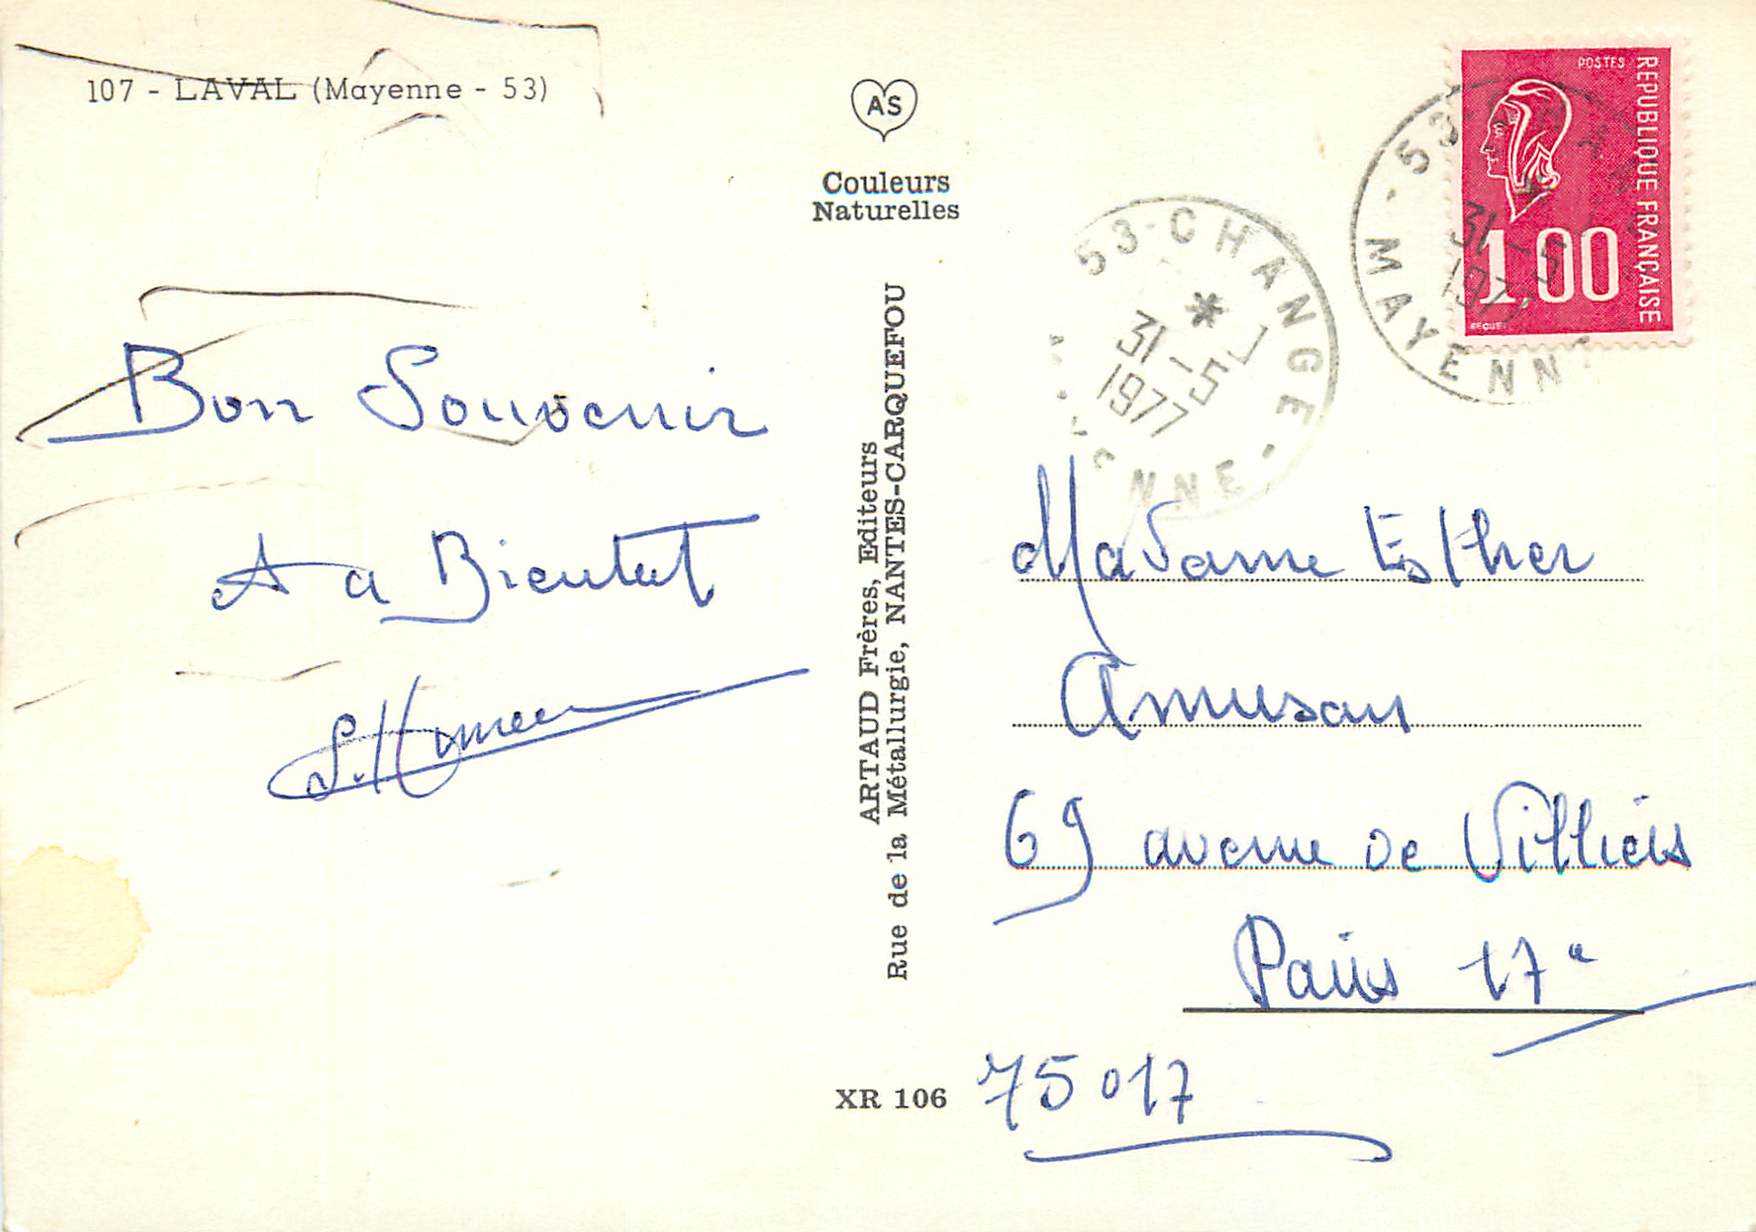 107 - LAVAL (Mayenne - 53)
AS
Couleurs
Naturelles
Bon Souvenir
A a Bientot
ARTAUD Frères, Editeurs
Rue de la Métallurgie, NANTES-CARQUEFOU
XR 106
POSTES
REPUBLIQUE FRANÇAISE
1,00
53
31 - 5
1977
MAYENN
53 - CHANGE
31 - 5
1977
ENNE
Madame Esther
Amusan
69 avenue de Villiers
Paris 17e
75017